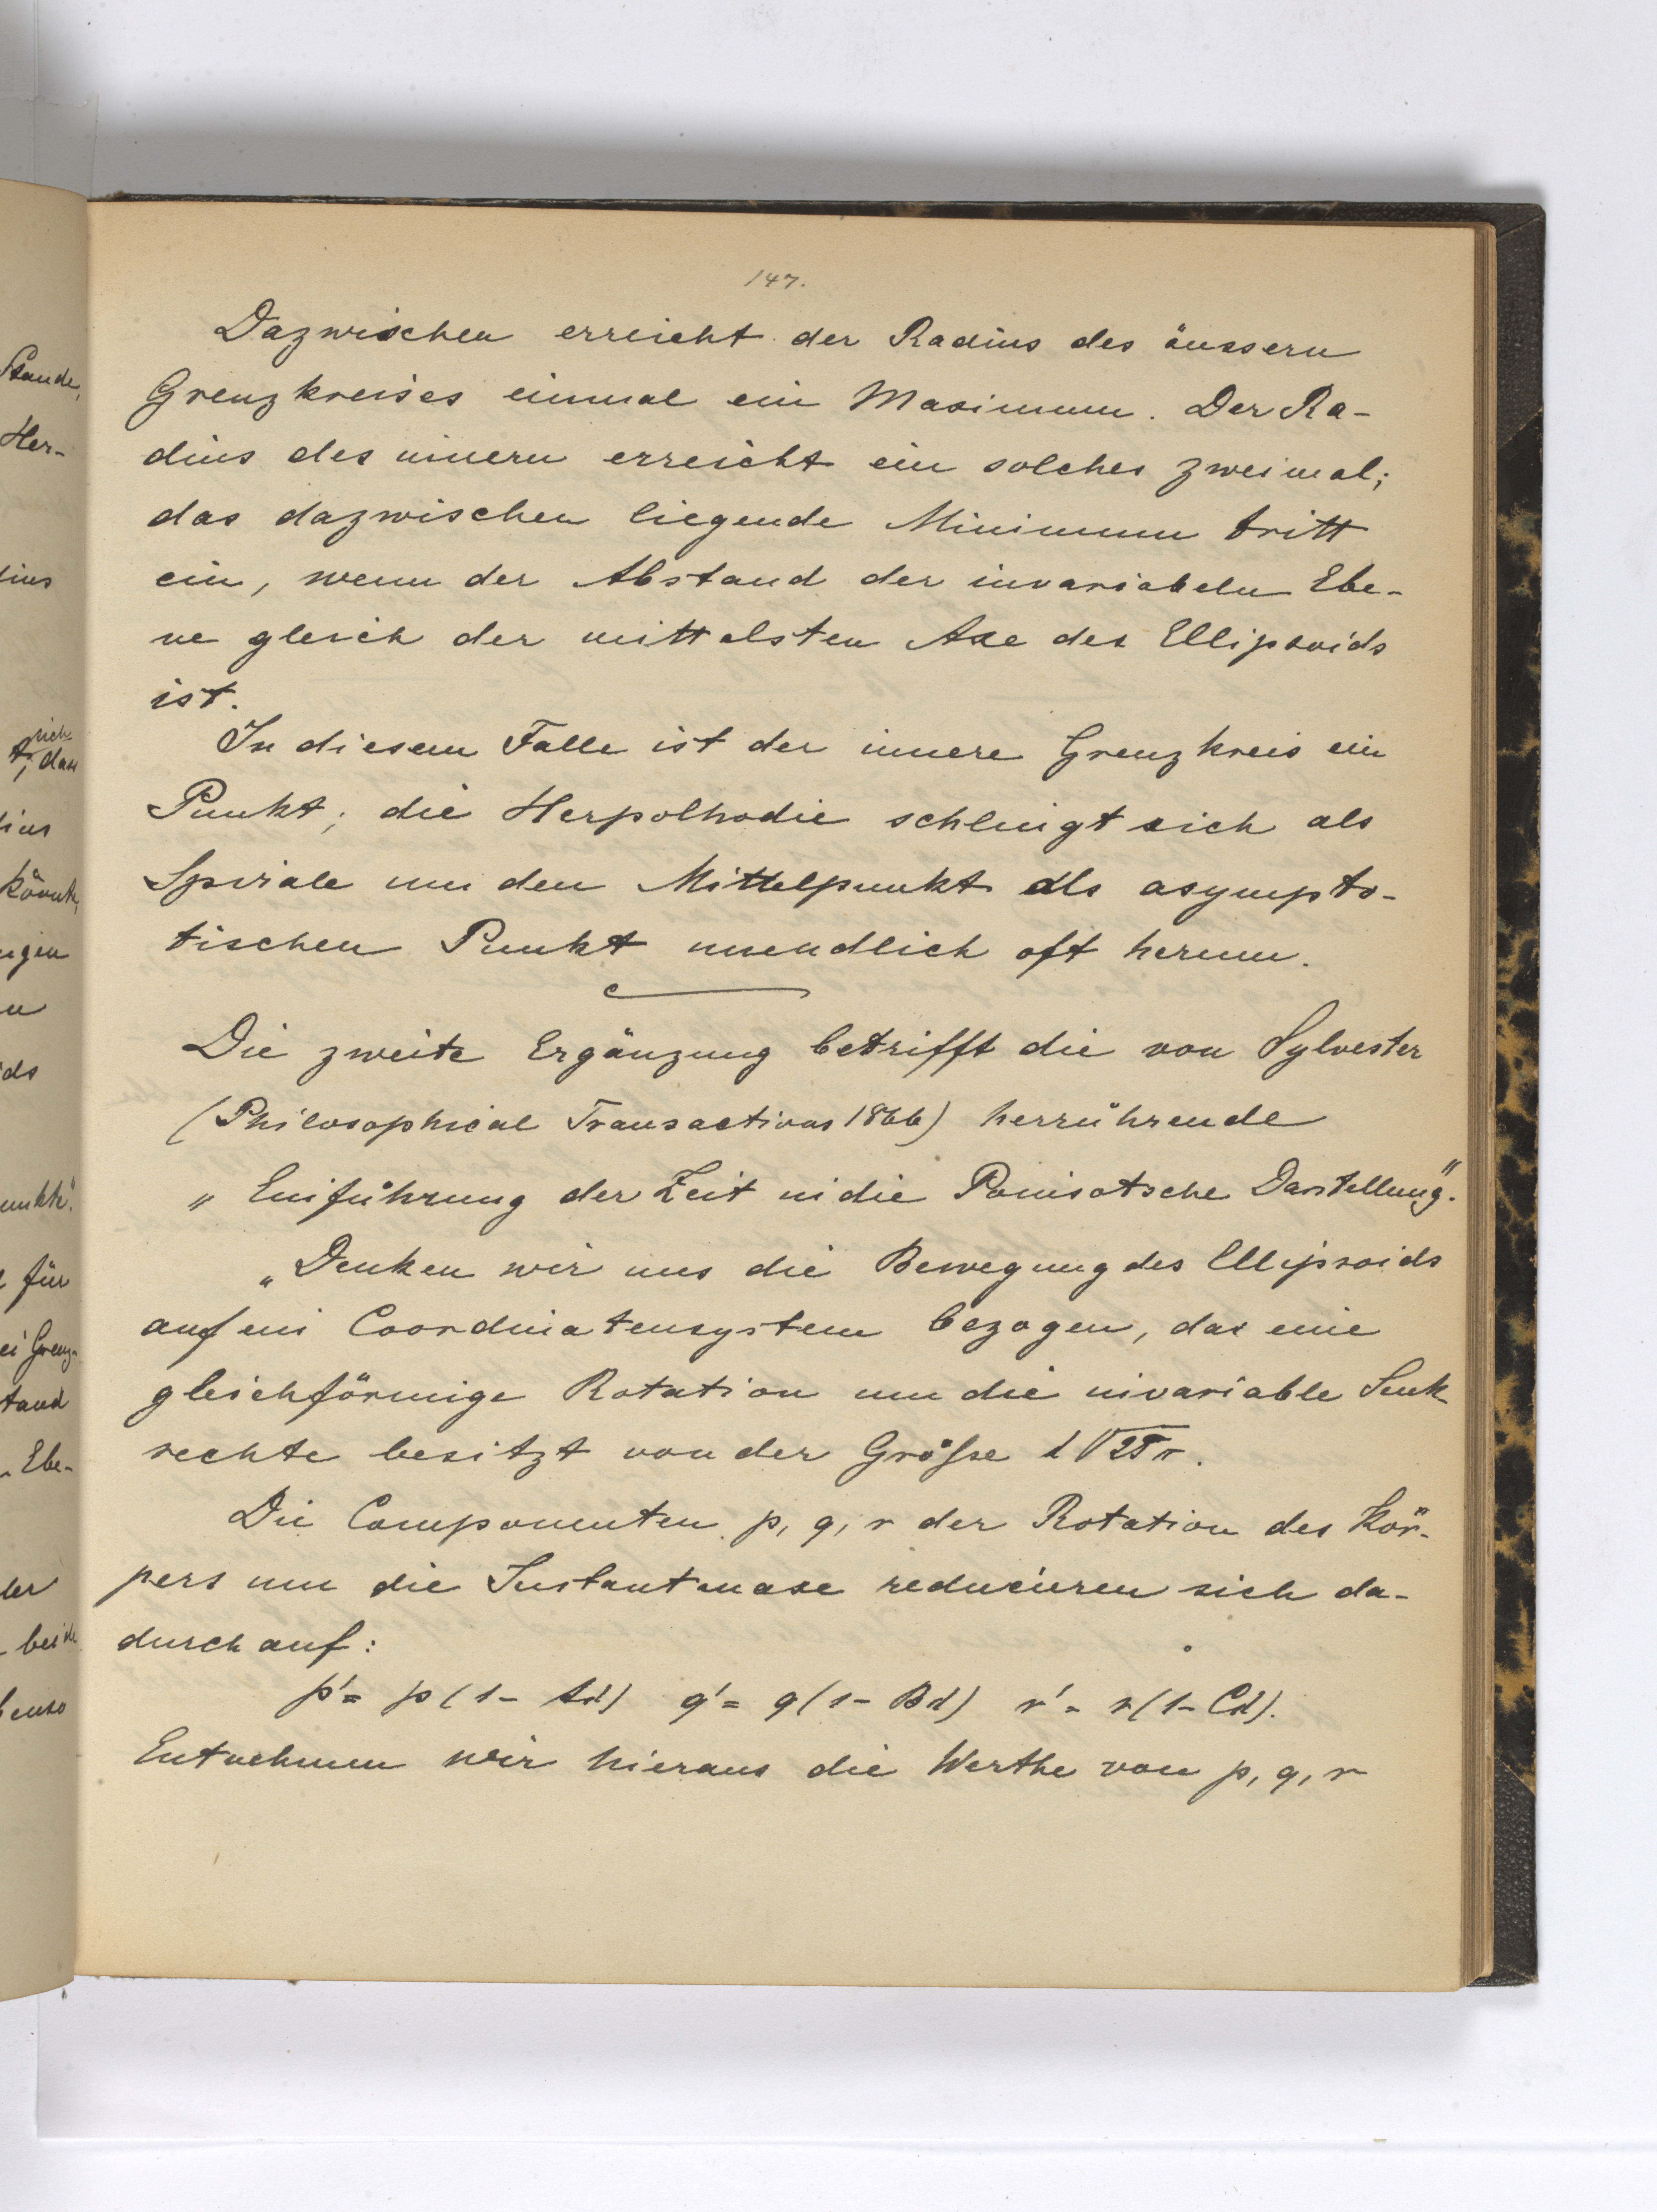 Stande,
Her-
dius
sich
t, dass
dius
könnte,
ngen
n
ids
unkte".
für
ei Grenz-
tand
Ebe-
der
beide
benso
147.
Dazwischen erreicht der Radius des äussern
Grenzkreises einmal ein Maximum. Der Ra-
dius des innern erreicht ein solches zweimal;
das dazwischen liegende Minimum tritt
ein, wenn der Abstand der invariabeln Ebe-
ne gleich der mittelsten Axe des Ellipsoids
ist.
In diesem Falle ist der innere Grenzkreis ein
Punkt; die Herpolhodie schlingt sich als
Spirale um den Mittelpunkt als asympto-
tischen Punkt unendlich oft herum.
Die zweite Ergänzung betrifft die von Sylvester
(Philosophical Transactions 1866) herrührende
„Einführung der Zeit in die Poinsotsche Darstellung".
„Denken wir uns die Bewegung des Ellipsoids
auf ein Coordinatensystem bezogen, das eine
gleichförmige Rotation um die invariable Senk-
rechte besitzt von der Größe
Die Componenten p, q, r der Rotation des Kör-
pers um die Instantanaxe reducieren sich da-
durch auf:
p' = p(1 - Ad) q' = q(1 - Bd) r' = r(1 - Cd).
Entnehmen wir hieraus die Werthe von p, q, r